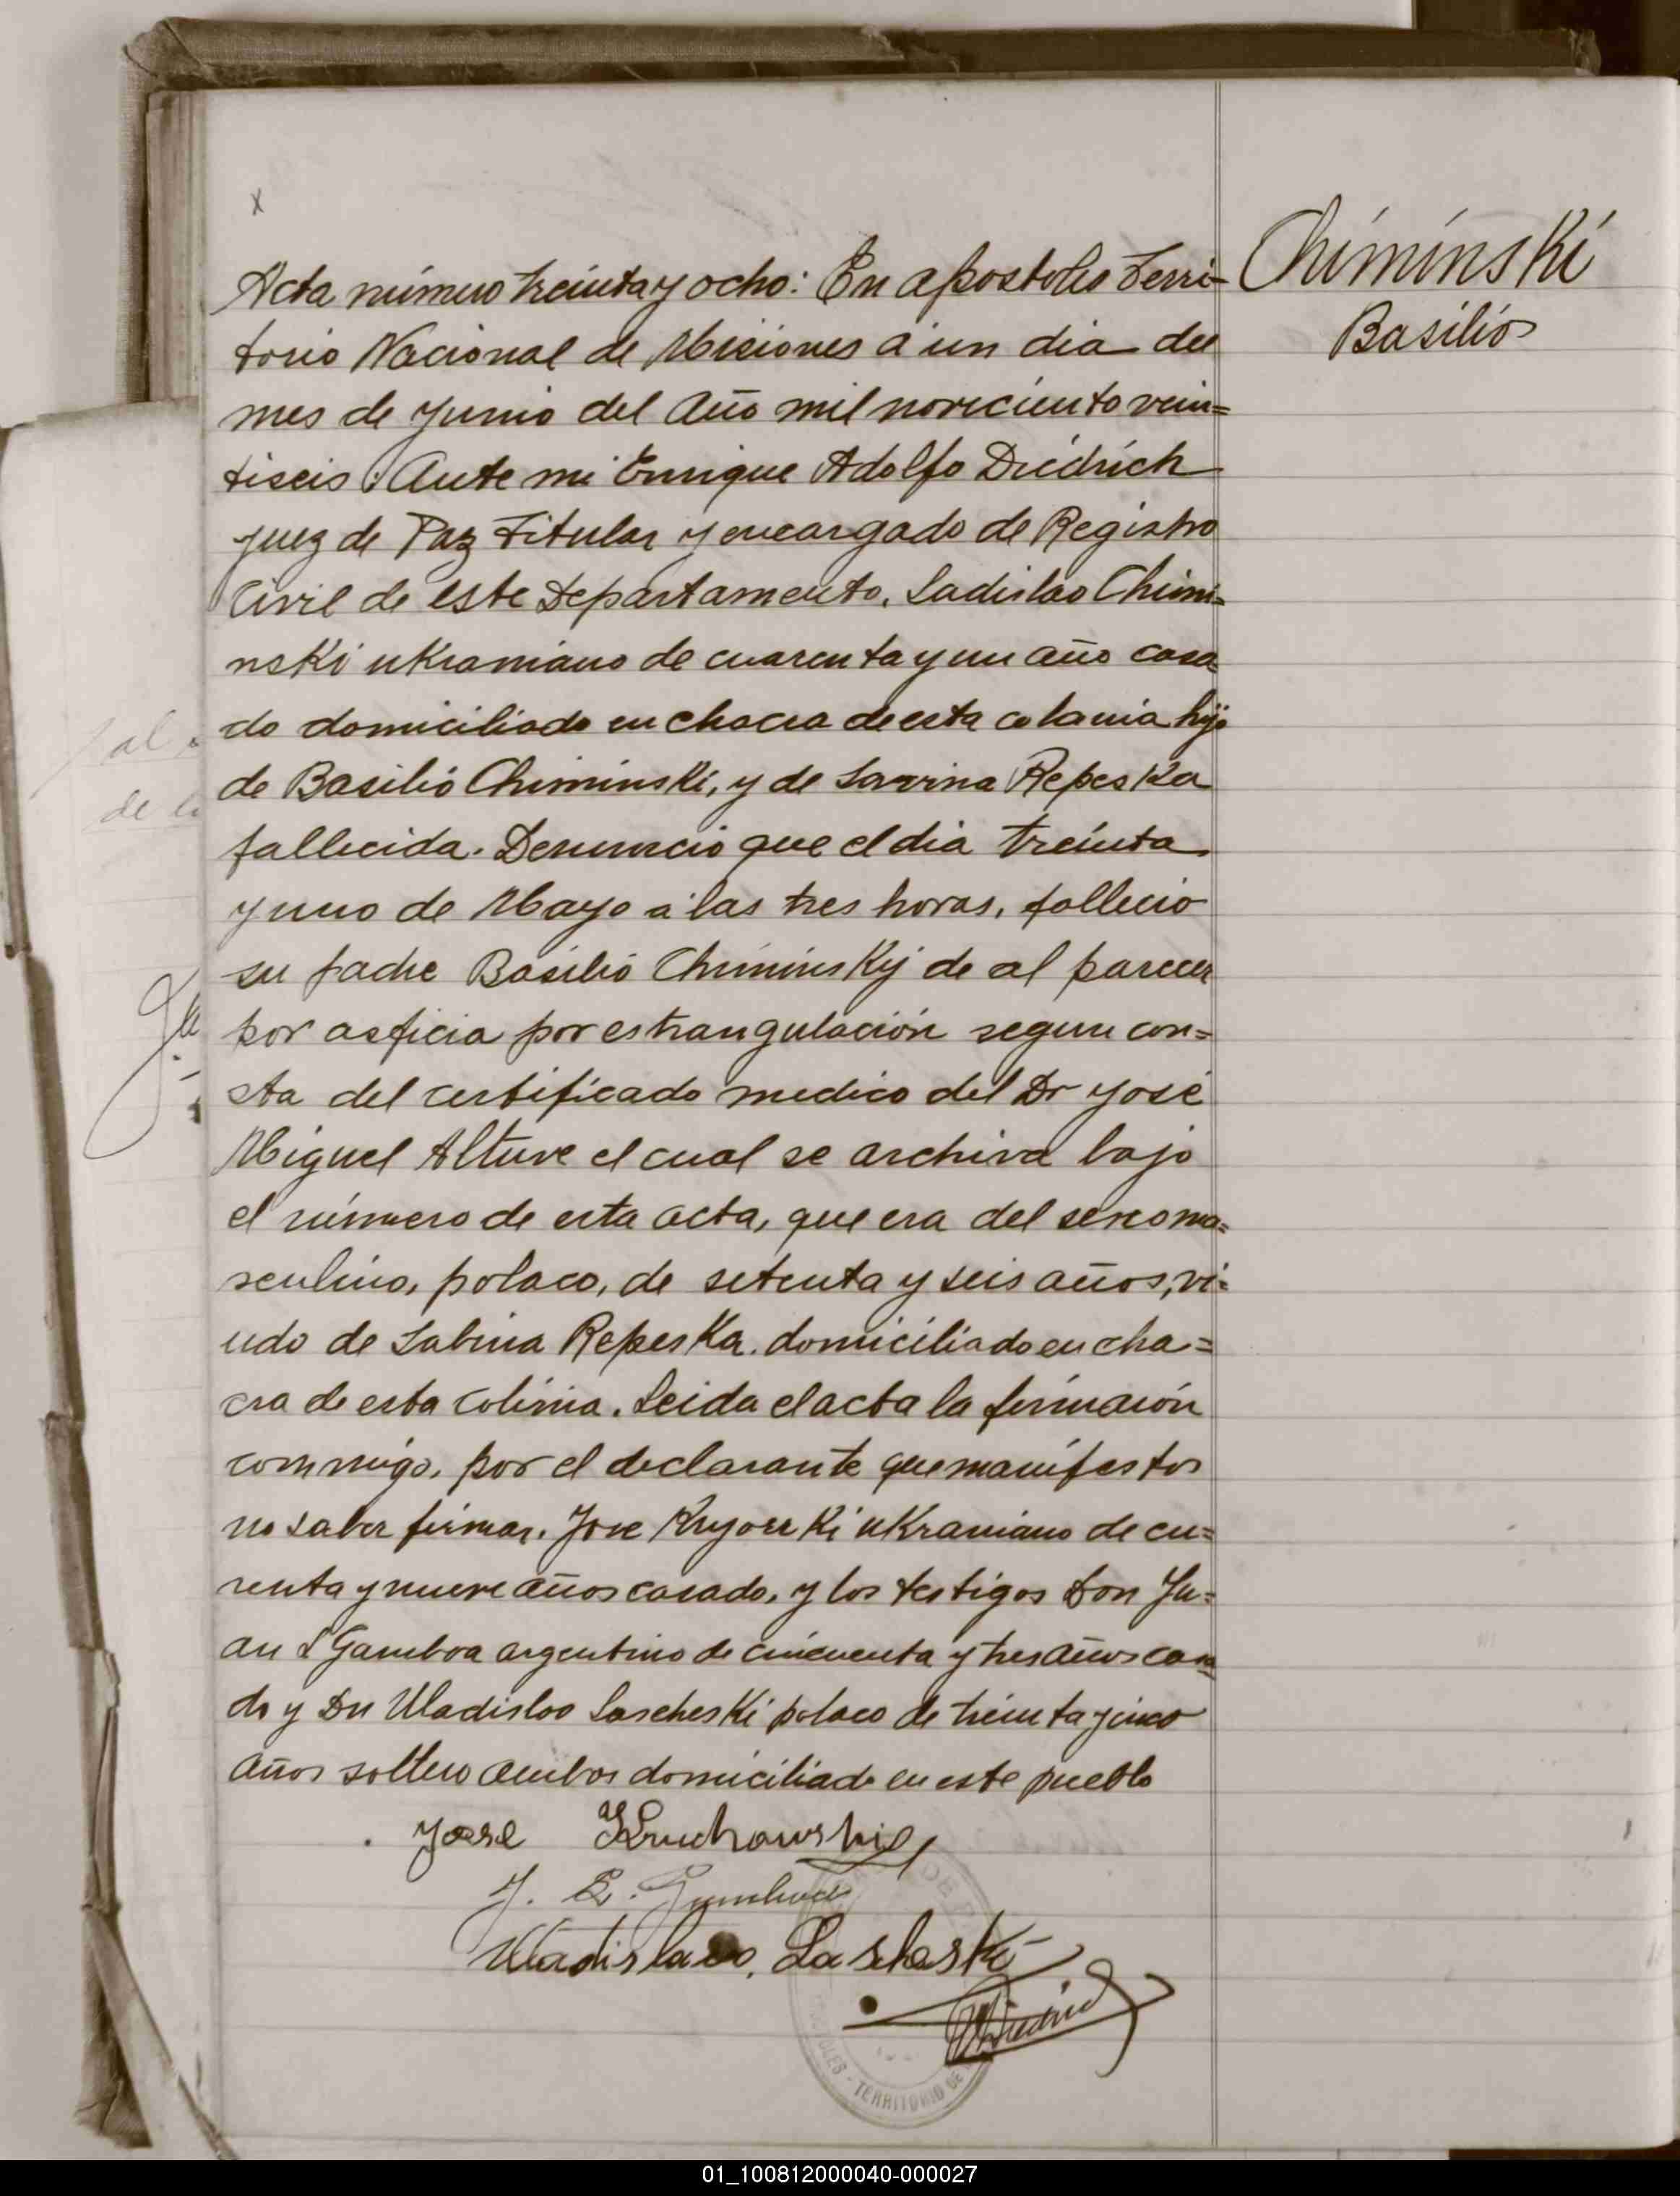 Chiminski
Basilio
Acta número treinta y ocho: En apostoles Terri-
torio Nacional de Misiones á un dia del
mes de Junio del Año mil noveciento vein=
tiseis: Ante mi Enrique Adolfo Diedrich
juez de Paz Titular y encargado de Registro
Civil de este Departamento, Ladislao Chimi=
nski ukraniano de cuarenta y un año casa
do domiciliado en chacra de esta colonia hijo
de Basilio Chiminski, y de Savina Repeska
fallecida. Denuncio que el dia treinta
y uno de Mayo a las tres horas, fallecio
su padre Basilio Chiminskÿ de al parecer
por asficia por estrangulación segun con=
sta del certificado medico del Dr José
Miguel Alture el cual se archiva bajo
el número de esta acta, que era del sexo ma=
sculino, polaco, de setenta y seis años, vi=
udo de Sabina Repeska. domiciliado en cha=
cra de esta colonia. Leida el acta la firmaron
commigo, por el declarante que manifestos
no saber firmar. Jose ukraniano de cu=
renta y nueve años casado, y los testigos Don Ju=
an L Gamboa argentino de cincuenta y tres años casa
do y Dn Uladislao Lascheski polaco de treinta y cinco
años soltero ambos domiciliado en este pueblo
Jose Kruchowski
J. L. Gamboa
Uladislavo. Lascheski
TERRITORIO DE
01_100812000040-000027